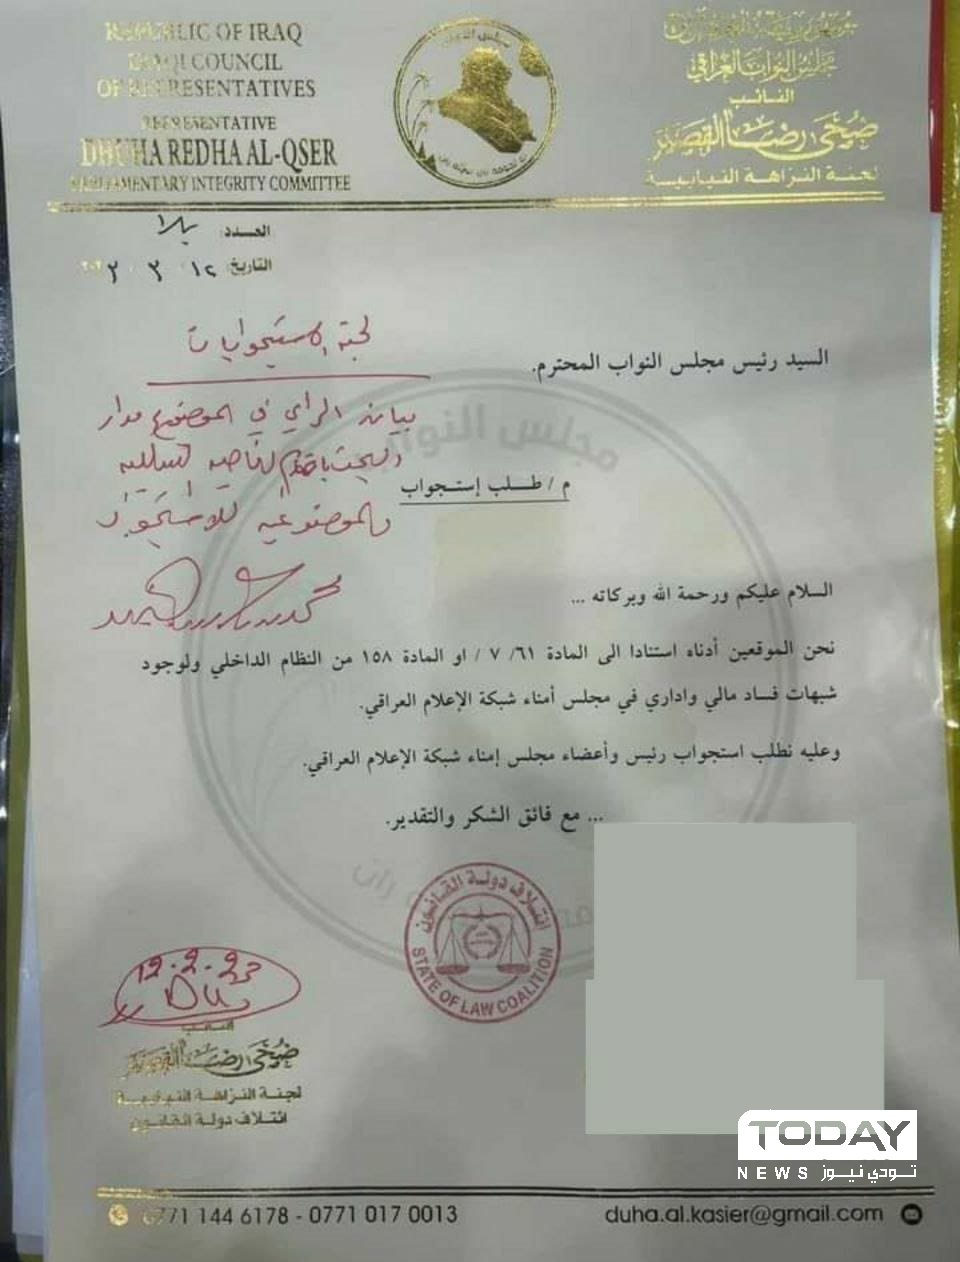 REPUBLIC OF IRAQ
IRAQI COUNCIL
OF REPRESENTATIVES
REPRESENTATIVE
DHUHA REDHA AL-QSER
PARLIAMENTARY INTEGRITY COMMITTEE
مجلس النواب
مجلس النواب العراقي
النائب
ضحى رضا القصير
لجنة النزاهة النيابية
العدد: بلا
التاريخ:
لجنة الاستجوابات
السيد رئيس مجلس النواب المحترم.
بيان الرأي في الموضوع مدار
م / طـلـب إستـجواب
السلام عليكم ورحمة الله وبركاته ...
نحن الموقعين أدناه استنادا الى المادة ٦١/ ٧ / او المادة ١٥٨ من النظام الداخلي ولوجود
شبهات فساد مالي واداري في مجلس أمناء شبكة الإعلام العراقي.
وعليه نطلب استجواب رئيس وأعضاء مجلس إمناء شبكة الإعلام العراقي.
... مع فائق الشكر والتقدير.
ائتلاف دولة القانون
STATE OF LAW COALITION
12.2.23
النائب
ضحى رضا القصير
لجنة النزاهة النيابية
ائتلاف دولة القانون
TODAY
NEWS تودي نيوز
0771 144 6178 - 0771 017 0013
duha.al.kasier@gmail.com